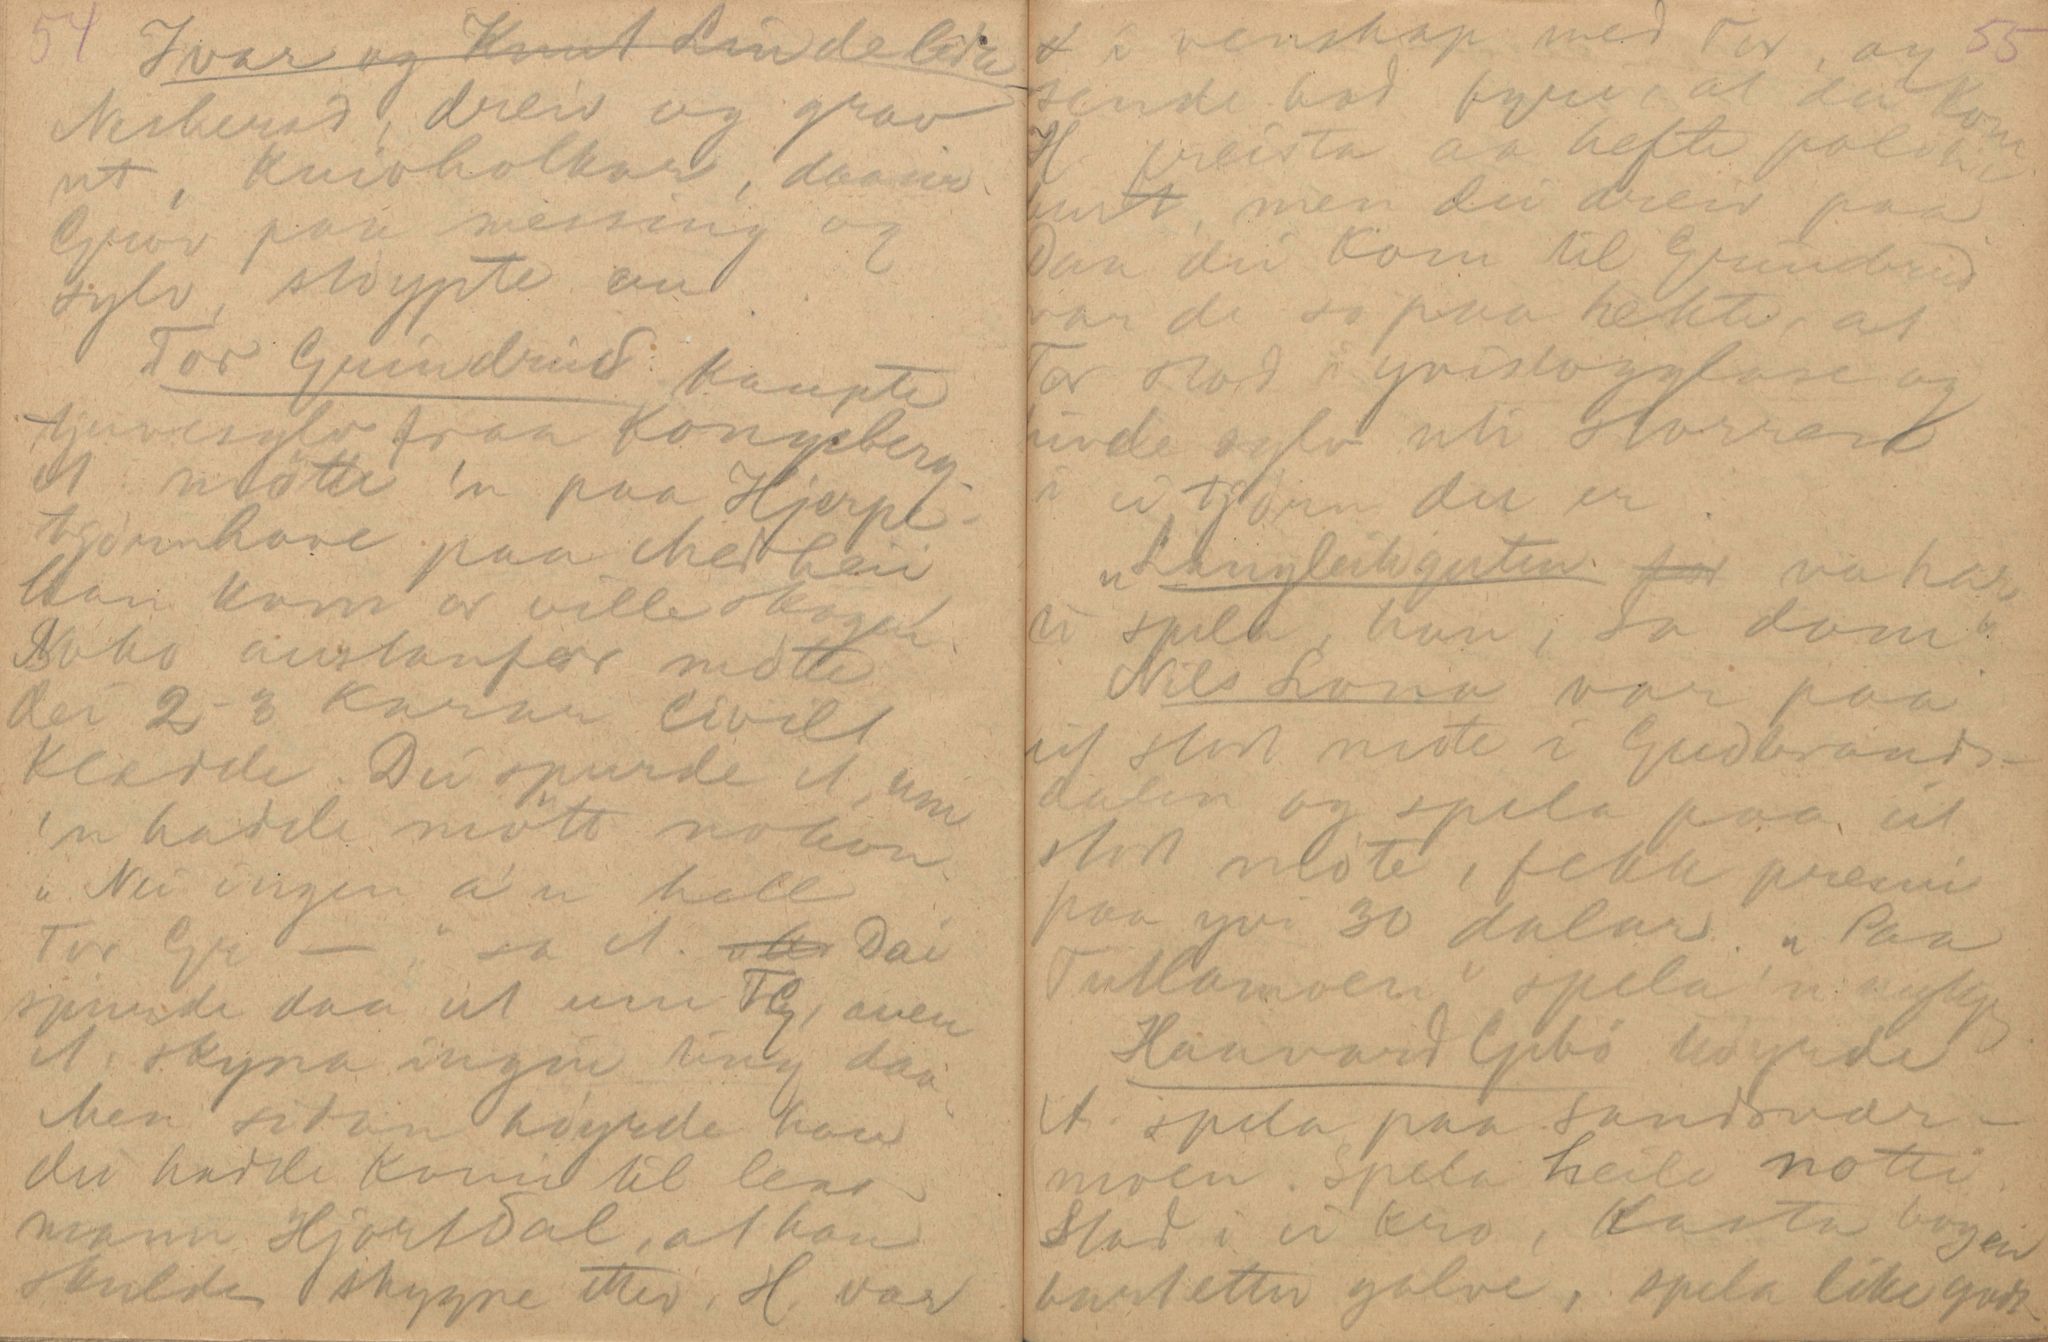 54
Ivar og Knut Lindelia
Nesherad, dreiv og grov
ut, knivholkar, daaner
Gjøv paa messing og
sylv, støypte au
Tor Grundrud kaupte
tjuvesylv fraa Kongsberg
A møtte 'n paa Hjerpe-
tjørnhove paa Medheii
Han kom or ville skogen
Noko austanfor møtte
dei 2-3 karar civilt
klædde. Dei spurde A. um
'n hadde møtt nokon
"Nei ingen a'n hell
Tor Gr —," sa A. Dai
spurde daa ut um TG, men
A. skyna ingin ting daa
Men sidan høyrde han
dei hadde komi til lens-
mann Hjartdal, at han
skulde skyggne etter, H. var
55
i venskap med Tor, og
sende bod fyre, at dei kom
H. freista aa hefte politi
burt, men dei dreiv paa
Daa dei kom til Grundrud
var de so paa hekta, at
Tor stod i yvistogglase og
sylv uti storren
i ei tjørn der er
"Langleikguten va har
ti spela, han, sa dom"
Nils Lona var paa
eit stort møte i Gudbrands-
dalen og spela paa eit
stort møte, fekk premi
paa yvi 30 dalar. "Paa
Tullamoen" spela 'n mykje
Haavard Gibø høyrde
A. spela paa Sandsvær-
moen. Spela heile notti
Stod i ei kro, kasta bogen
burt etter golve, spela like godt